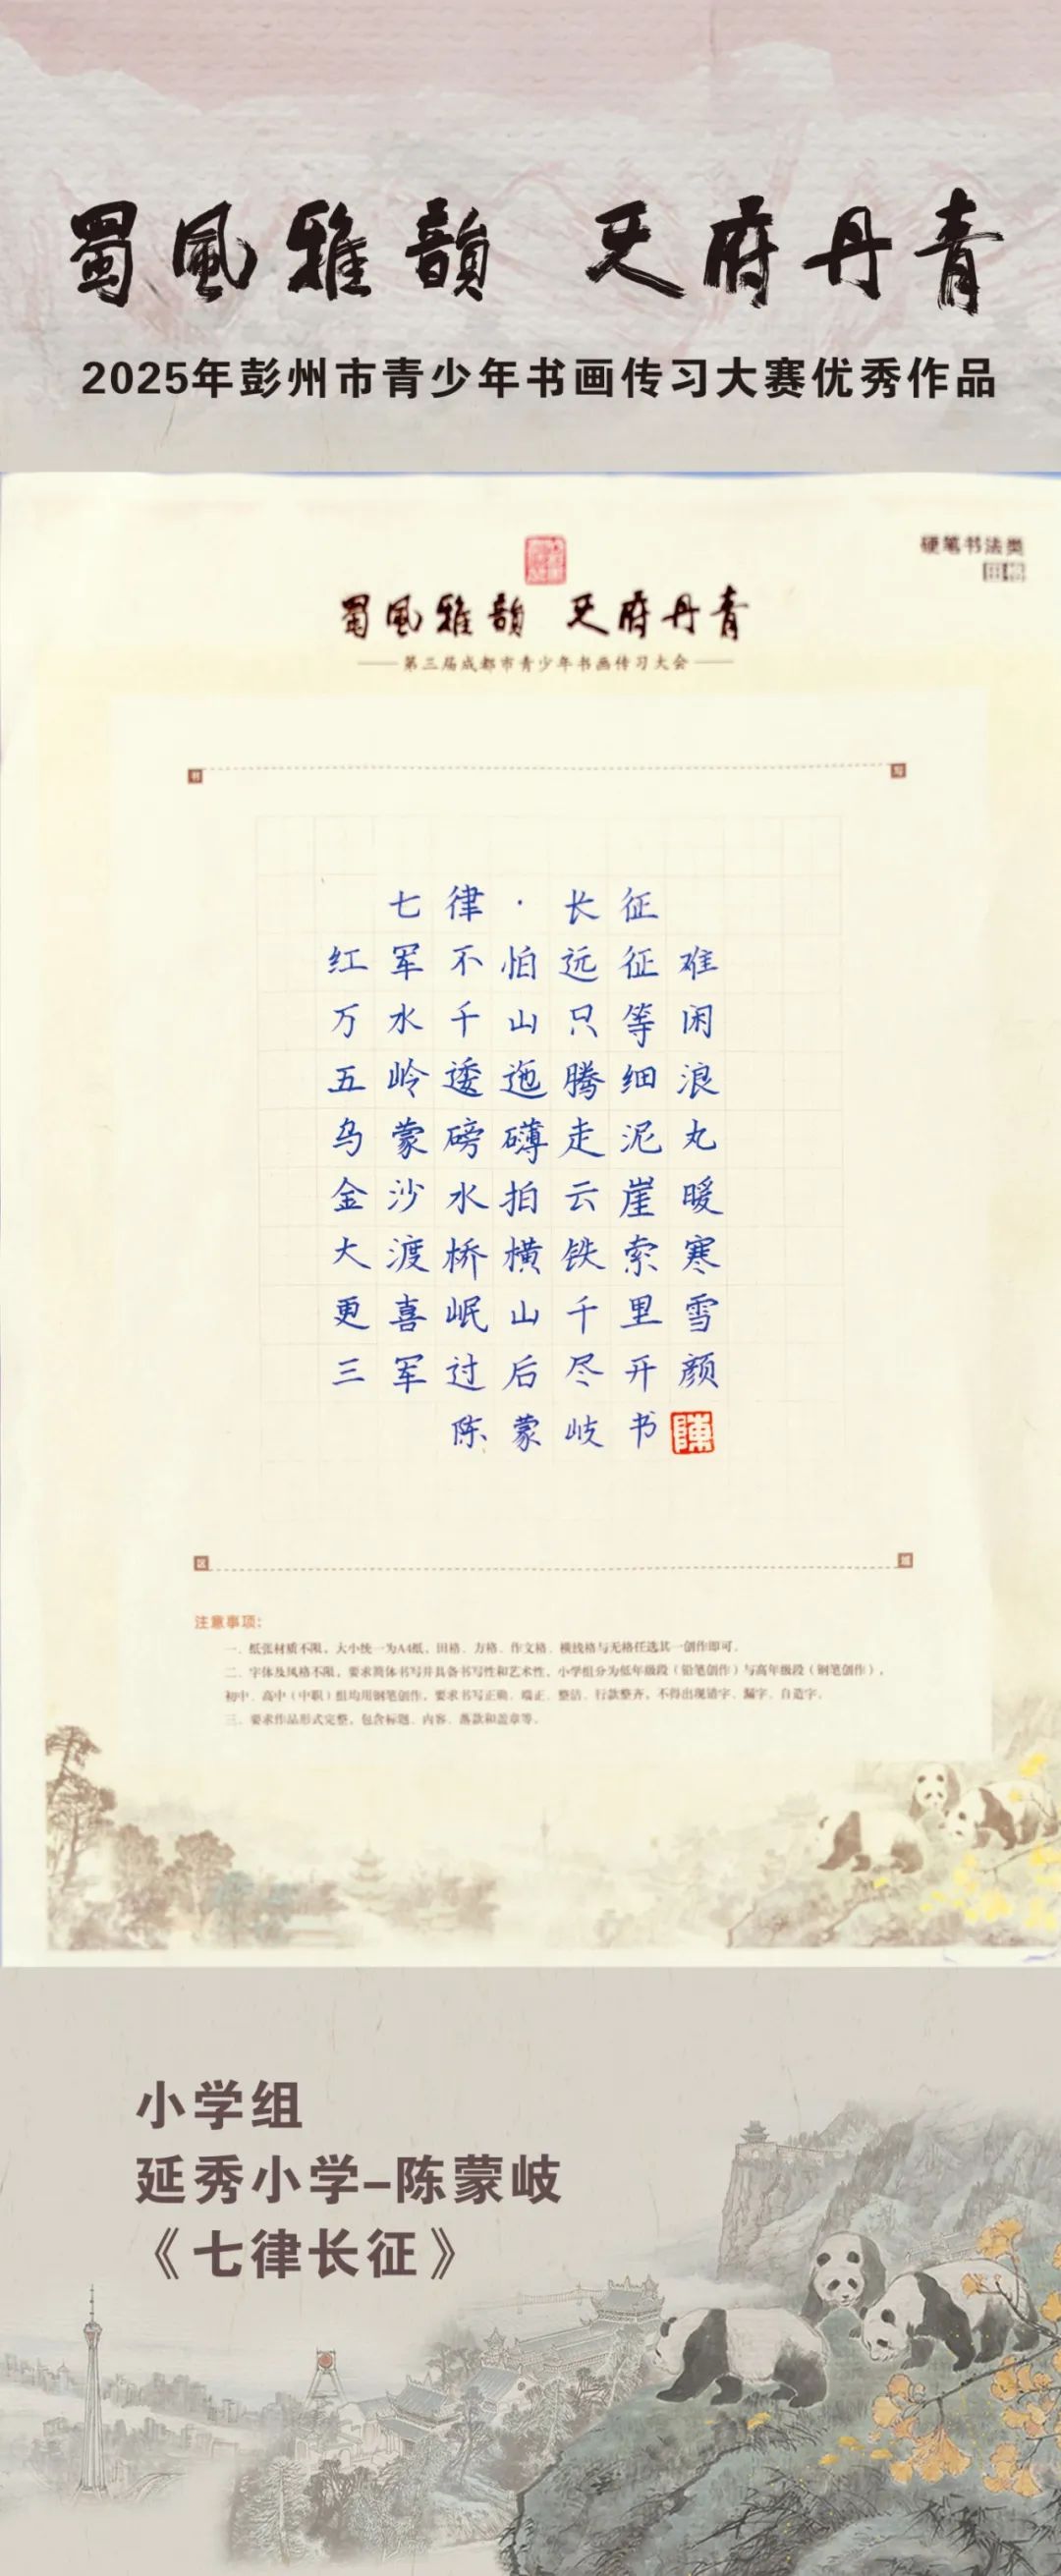 蜀风雅韵 天府丹青
2025年彭州市青少年书画传习大赛优秀作品
硬笔书法类
田格
蜀风雅韵 天府丹青
第三届成都市青少年书画传习大会
书 写
七律·长征
红军不怕远征难
万水千山只等闲
五岭逶迤腾细浪
乌蒙磅礴走泥丸
金沙水拍云崖暖
大渡桥横铁索寒
更喜岷山千里雪
三军过后尽开颜
陈蒙岐书 陳
区 域
注意事项:
一、纸张材质不限，大小统一为A4纸，田格、方格、作文格、横线格与无格任选其一创作即可。
二、字体及风格不限，要求简体书写并具备书写性和艺术性，小学组分为低年级段（铅笔创作）与高年级段（钢笔创作），
初中、高中（中职）组均用钢笔创作，要求书写正确、端正、整洁、行款整齐，不得出现错字、漏字、自造字。
三、要求作品形式完整，包含标题、内容、落款和盖章等。
小学组
延秀小学-陈蒙岐
《七律长征》